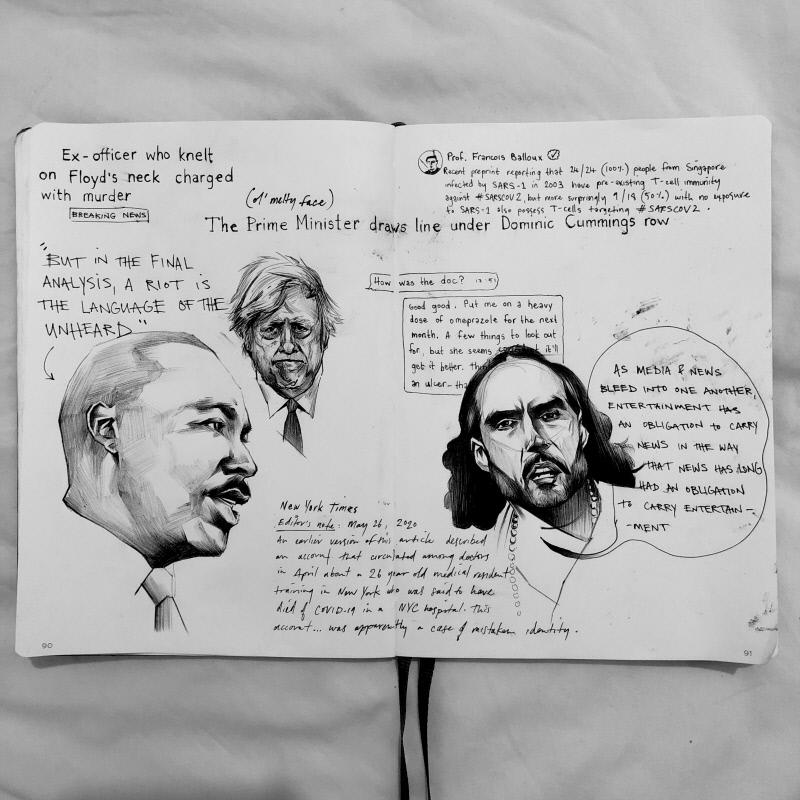 Ex-officer who knelt
on Floyd's neck charged
with murder
BREAKING NEWS
(ol' melty face)
The Prime Minister draws line under Dominic Cummings row
Prof. Francois Balloux
Recent preprint reporting that 24/24 (100%) people from Singapore
infected by SARS-1 in 2003 have pre-existing T-cell immunity
against #SARSCOV2, but more surprisingly 9/18 (50%) with no exposure
to SARS-1 also possess T-cells targeting #SARSCOV2.
"BUT IN THE FINAL
ANALYSIS, A RIOT IS
THE LANGUAGE OF THE
UNHEARD"
How was the doc? 12:51
Good good. Put me on a heavy
dose of omeprazole for the next
month. A few things to look out
for, but she seems it'll
get it better.
an ulcer-
AS MEDIA & NEWS
BLEED INTO ONE ANOTHER,
ENTERTAINMENT HAS
AN OBLIGATION TO CARRY
NEWS IN THE WAY
THAT NEWS HAS LONG
HAD AN OBLIGATION
TO CARRY ENTERTAIN-
-MENT
New York Times
Editor's note: May 26, 2020
An earlier version of this article described
an account that circulated among doctors
in April about a 26 year old medical resident
training in New York who was said to have
died of COVID-19 in a NYC hospital. This
account... was apparently a case of mistaken identity.
90
91